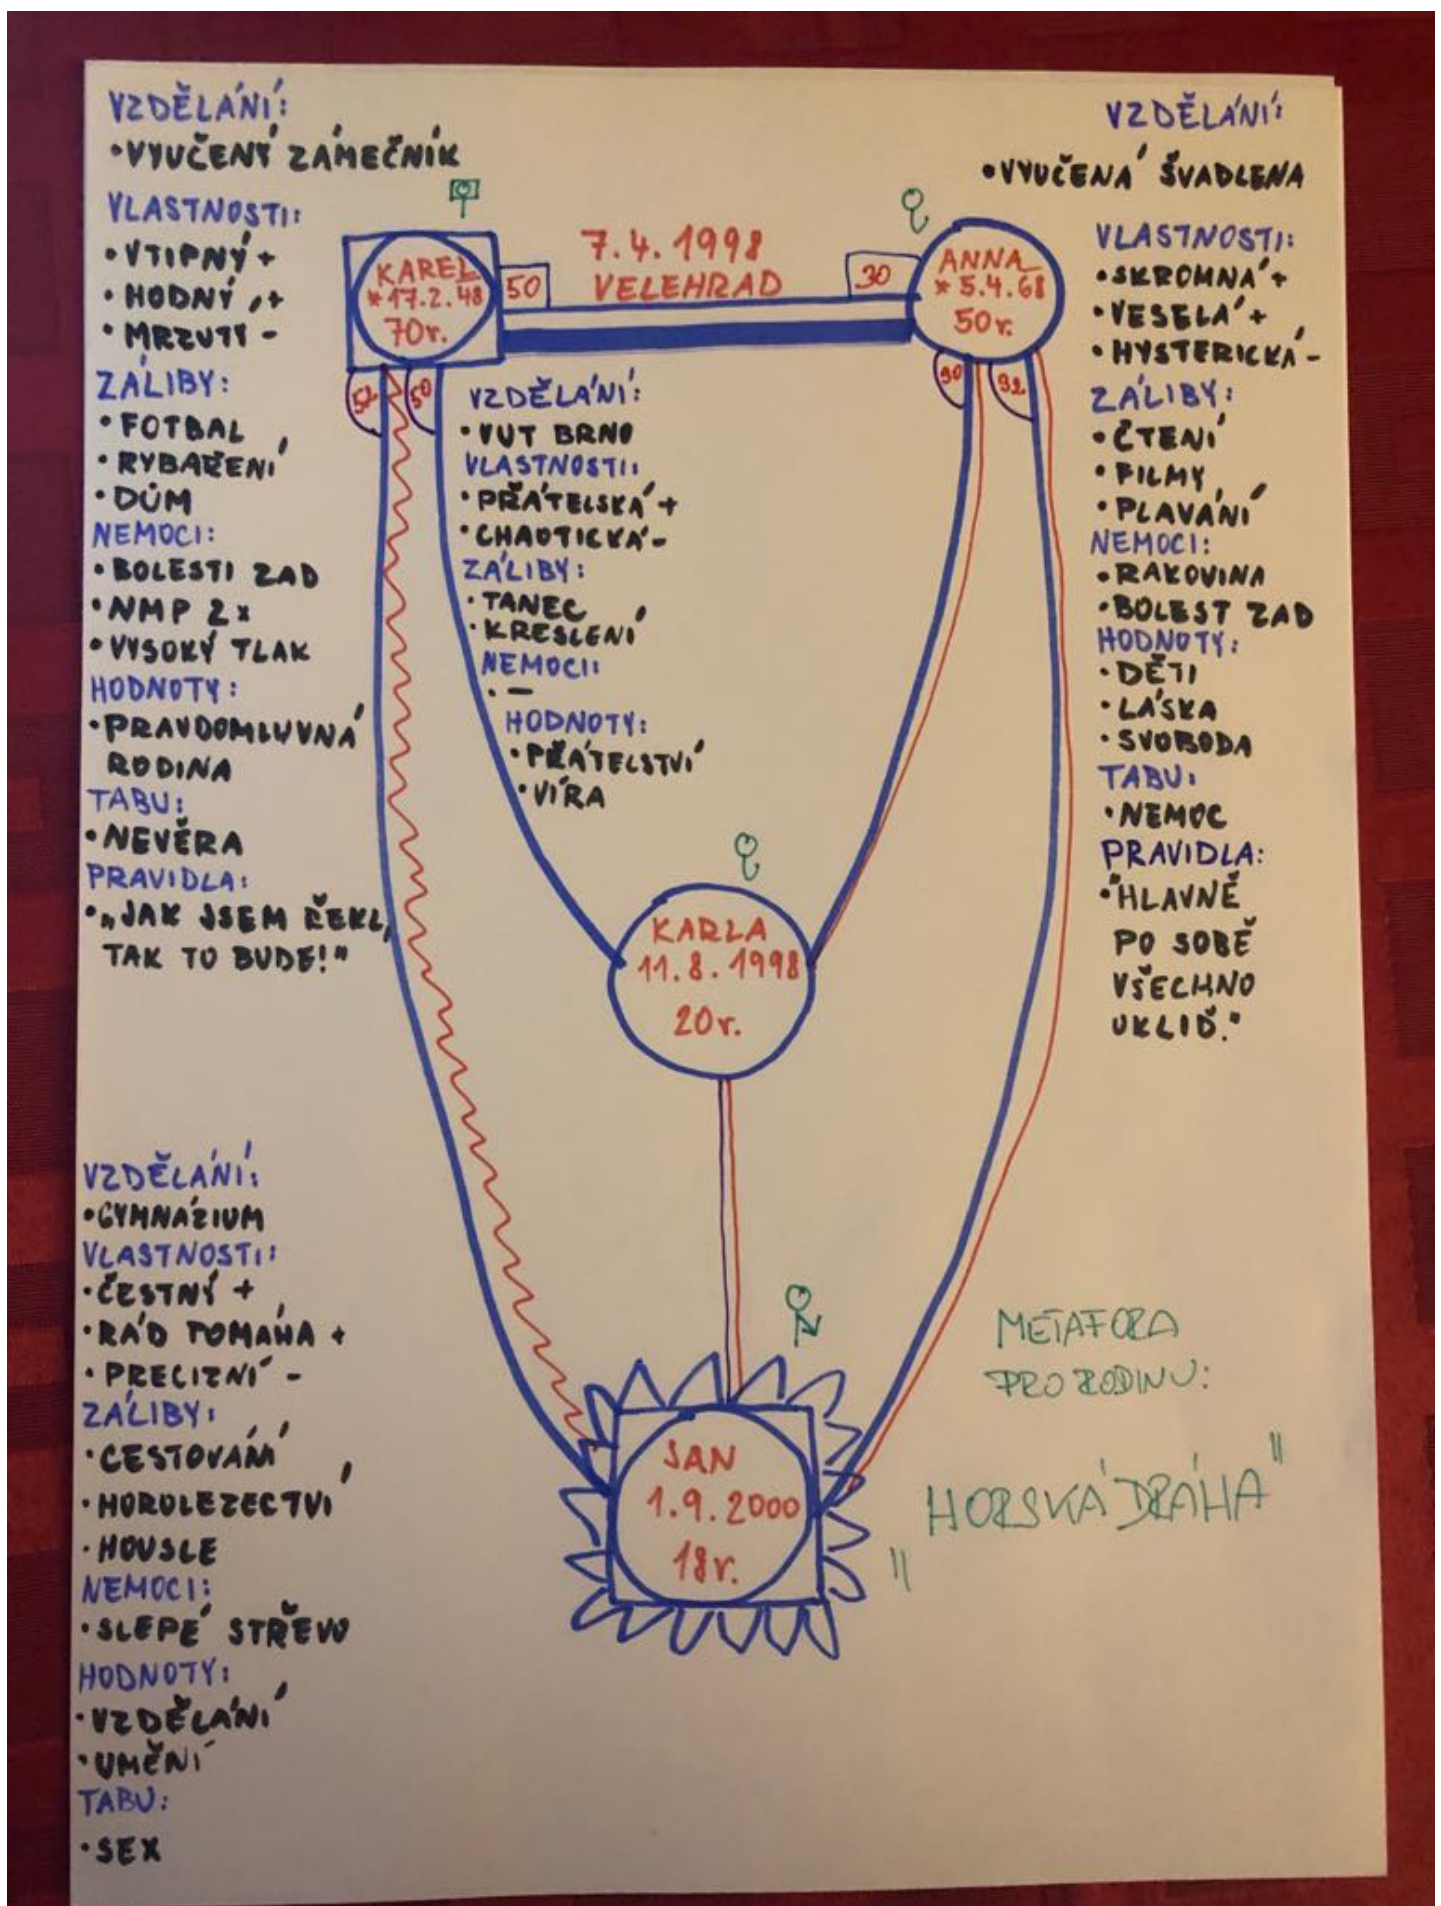 VZDĚLÁNÍ:
• VYUČENÝ ZÁMEČNÍK
VLASTNOSTI:
• VTIPNÝ +
• HODNÝ +
• MRZUTÝ -
ZÁLIBY:
• FOTBAL
• RYBAŘENÍ
• DŮM
NEMOCI:
• BOLESTI ZAD
• NMP 2x
• VYSOKÝ TLAK
HODNOTY:
• PRAVDOMLUVNÁ
RODINA
TABU:
• NEVĚRA
PRAVIDLA:
• „JAK JSEM ŘEKL,
TAK TO BUDE!"
KAREL
* 17.2.48
70r.
50
7.4.1998
VELEHRAD
30
ANNA
* 5.4.68
50r.
52
50
30
32
VZDĚLÁNÍ:
• VUT BRNO
VLASTNOSTI:
• PŘÁTELSKÁ +
• CHAOTICKÁ -
ZÁLIBY:
• TANEC
• KRESLENÍ
NEMOCI:
• —
HODNOTY:
• PŘÁTELSTVÍ
• VÍRA
VZDĚLÁNÍ:
• VYUČENÁ ŠVADLENA
VLASTNOSTI:
• SKROMNÁ +
• VESELÁ +
• HYSTERICKÁ -
ZÁLIBY:
• ČTENÍ
• FILMY
• PLAVÁNÍ
NEMOCI:
• RAKOVINA
• BOLEST ZAD
HODNOTY:
• DĚTI
• LÁSKA
• SVOBODA
TABU:
• NEMOC
PRAVIDLA:
• "HLAVNĚ
PO SOBĚ
VŠECHNO
UKLIĎ."
KARLA
11.8.1998
20r.
VZDĚLÁNÍ:
• GYMNÁZIUM
VLASTNOSTI:
• ČESTNÝ +
• RÁD POMÁHÁ +
• PRECIZNÍ -
ZÁLIBY:
• CESTOVÁNÍ
• HOROLEZECTVÍ
• HOUSLE
NEMOCI:
• SLEPÉ STŘEVO
HODNOTY:
• VZDĚLÁNÍ
• UMĚNÍ
TABU:
• SEX
JAN
1.9.2000
18r.
METAFORA
PRO RODINU:
"HORSKÁ DRÁHA"